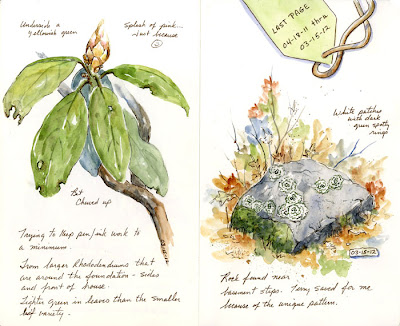 Underside a
yellowish green
Splash of pink
- Just because
Bit
Chewed up
Trying to keep pen/ink work to
a minimum.
From larger Rhododendrums that
are around the foundation - sides
and front of house.
Lighter green in leaves than the smaller
leaf variety.
LAST PAGE
04-18-11 thru
03-15-12
White patches
with dark
green spotty
rings
03-15-12
Rock found near
basement steps. Terry saved for me
because of the unique pattern.